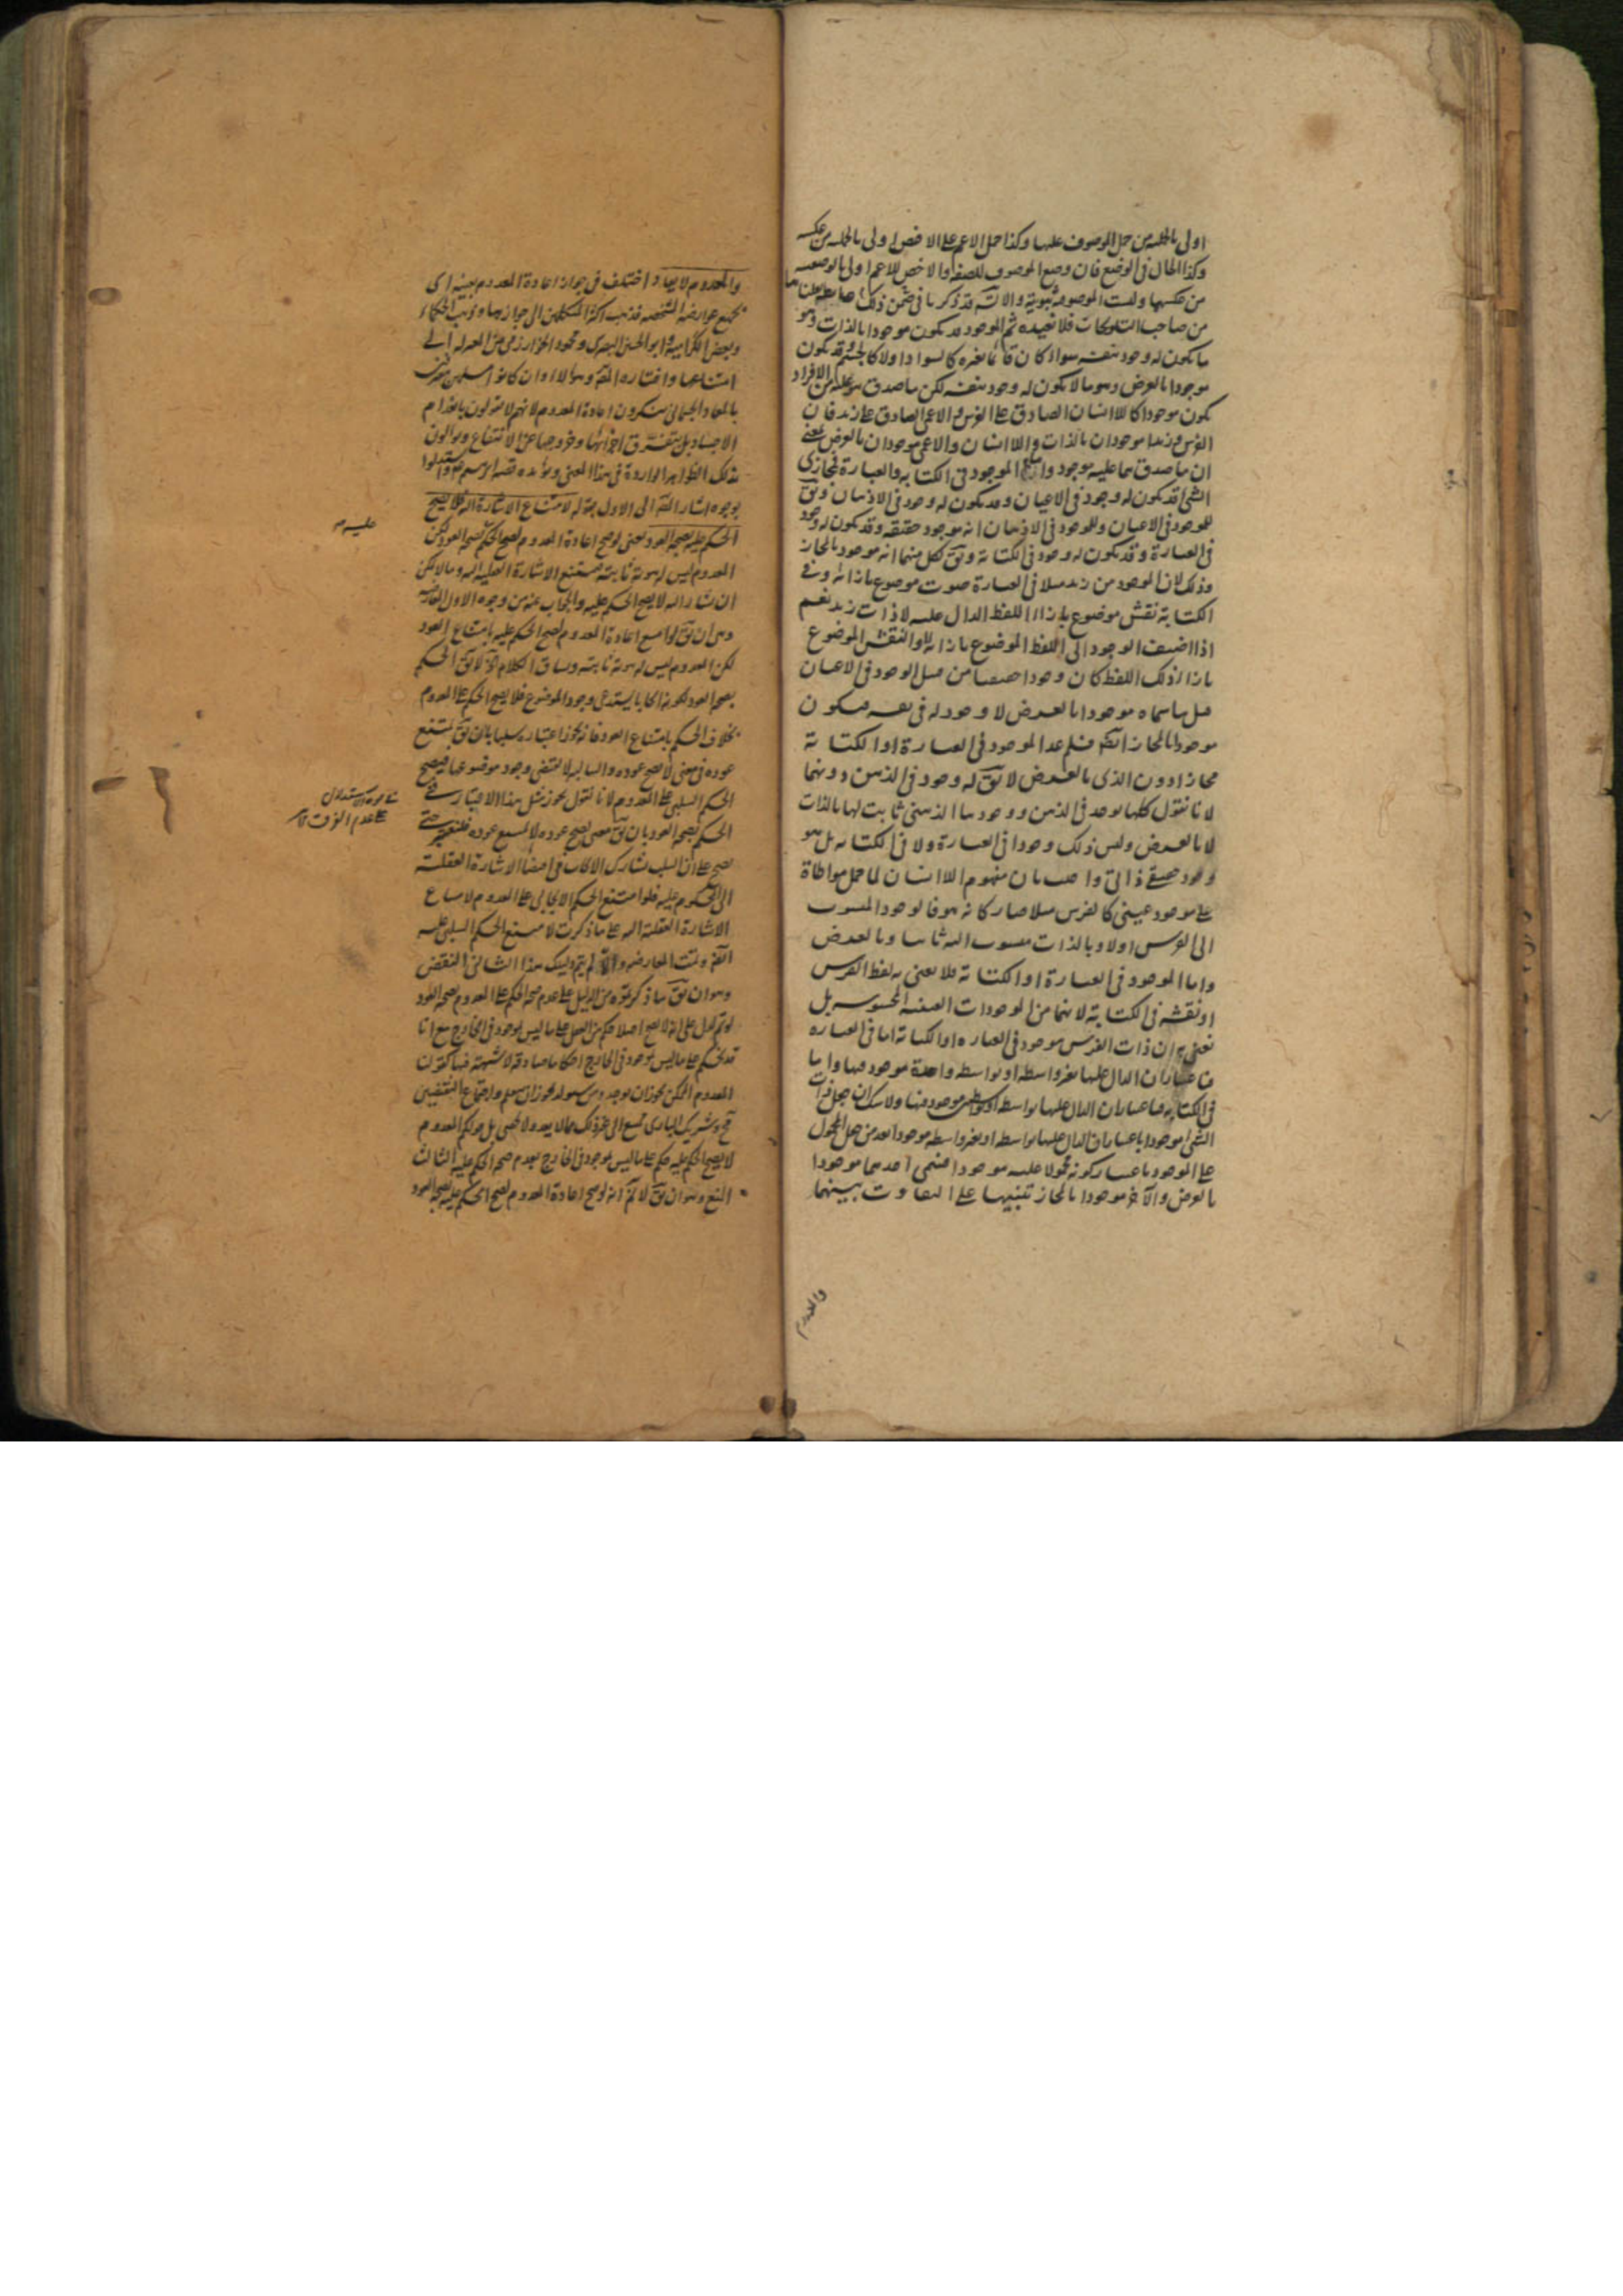 اولى بالحمليه من حمل الموصوف عليها وكذا حمل الاعم على الاخص اولى بالحمليه من عكسه
وكذا الحال فى الوضع فان وضع الموصوف للصفه والاخص للاعم اولى بالوضعيه
من عكسها وليست الموضوعيه ثبوتية والا تسلسل قد ذكرنا فى ضمن ذلك
من صاحب التلويحات فلا نعيده ثم الموجود قد يكون موجودا بالذات وهو
ما يكون له وجود بنفسه سواء كان قائما بغيره كالسواد اولا كالجسم وقد يكون
موجودا بالعرض وهو ما لا يكون له وجود بنفسه لكن ما صدق هو عليه من الافراد
يكون موجودا كاللاانسان الصادق على الفرس والاعمى الصادق على زيد فان
الفرس وزيدا موجودان بالذات واللاانسان والاعمى موجودان بالعرض بمعنى
ان ما صدقا عليه موجود واما الموجود فى الكتابه والعبارة فمجازى
الشئ قد يكون له وجود فى الاعيان وقد يكون له وجود فى الاذهان ويق
للموجود فى الاعيان وللموجود فى الاذهان انه موجود حقيقة وقد يكون له وجود
فى العبارة وقد يكون له وجود فى الكتابة ويق لكل منهما انه موجود بالمجاز
وذلك لان الموجود من زيد مثلا فى العبارة صوت موضوع بازائه وفى
الكتابة نقش موضوع بازاء اللفظ الدال عليه لا ذات زيد نعم
اذا اضيف الوجود الى اللفظ الموضوع بازائه او النقش الموضوع
بازاء ذلك اللفظ كان وجودا حقيقيا من قبيل الوجود فى الاعيان
قيل ما سماه موجودا بالعرض لا وجود له فى نفسه فيكون
موجودا بالمجاز ايضا فلم عد الموجود فى العبارة او الكتابة
مجازا دون الذى بالعرض لا يق له وجود فى الذهن دونهما
لانا نقول كلها يوجد فى الذهن ووجودها الذهنى ثابت لها بالذات
لا بالعرض وليس ذلك وجودا فى العبارة ولا فى الكتابه بل هو
وجود حقيقى ذاتى واجيب بان مفهوم اللاانسان لما حمل مواطاة
على موجود عينى كالفرس مثلا صار كانه هو فالوجود المنسوب
الى الفرس اولا وبالذات منسوب اليه ثانيا وبالعرض
واما الموجود فى العبارة او الكتابة فلا يعنى به لفظ الفرس
او نقشه فى الكتابة لانهما من الموجودات العينيه المحسوسه بل
نعنى به ان ذات الفرس موجود فى العباره او الكتابة اما فى العباره
فباعتبار ان الدال عليها بغير واسطه او بواسطه واحدة موجود فيها واما
فى الكتابه فباعتبار ان الدال عليها بواسطه او بواسطتين موجود فيها ولا شك ان جعل ذات
الشئ موجودا باعتبار ان الدال عليها بواسطه او بغير واسطه موجود ابعد من جعل المحمول
على الموجود باعتبار كونه محمولا عليه موجودا فسمى احدهما موجودا
بالعرض والآخر موجودا بالمجاز تنبيها على التفاوت بينهما
والمعدوم
والمعدوم لا يعاد اختلف فى جواز اعادة المعدوم بعينه اى
بجميع عوارضه المشخصه فذهب اكثر المتكلمين الى جوازها وذهب الحكماء
وبعض الكرامية وابو الحسن البصرى ومحمود الخوارزمى من المعتزله الى
امتناعها واختاره المص وهؤلاء وان كانوا مسلمين معترفين
بالمعاد الجسمانى ينكرون اعادة المعدوم لانهم لا يقولون بانعدام
الاجساد بل بتفرق اجزائها وخروجها عن الانتفاع ويؤولون
بذلك الظواهر الواردة فى هذا المعنى ويؤيده قصه ابرهيم واستدلوا
بوجوه اشار المص الى الاول بقوله لامتناع الاشارة اليه فلا يصح
الحكم عليه بصحة العود يعنى لو صح اعادة المعدوم لصح الحكم عليه بصحة العود لكن
المعدوم ليس له هوية ثابته فيمتنع الاشارة العقلية اليه وما لا يمكن
ان يشار اليه لا يصح الحكم عليه والجواب عنه من وجوه الاول المعارضه
وهى ان يق لو امتنع اعادة المعدوم لصح الحكم عليه بامتناع العود
لكن المعدوم ليس له هوية ثابته ويساق الكلام الى آخره لا يق الحكم
بصحة العود لكونه ايجابا يستدعى وجود الموضوع فلا يصح الحكم على المعدوم
بخلاف الحكم بامتناع العود فانه يجوز اعتباره سلبا بان يق يمتنع
عوده فى معنى لا يصح عوده والسالبه لا تقتضى وجود موضوعها فيصح
الحكم السلبى على المعدوم لانا نقول يجوز مثل هذا الاعتبار فى
الحكم بصحة العود بان يق معنى يصح عوده لا يمتنع عوده
يصح على ان السلب يشارك الايجاب فى اقتضاء الاشارة العقلية
الى المحكوم عليه فلو امتنع الحكم الايجابى على المعدوم لامتناع
الاشارة العقلية اليه على ما ذكرت لامتنع الحكم السلبى عليه
ايضا وتمت المعارضه والا لم يتم دليلك هذا الثانى النقض
وهو ان يق ما ذكرتموه من الدليل على عدم صحة الحكم على المعدوم بصحة العود
لو تم لدل على انه لا يصح اصلا حكم من العقل على ما ليس بموجود فى الخارج مع انا
قد نحكم على ما ليس بموجود فى الخارج احكاما صادقه لا شبهة فيها كقولنا
المعدوم الممكن يجوز ان يوجد ومن سيولد يجوز ان يتعلم واجتماع النقيضين
مح وشريك البارى ممتنع الى غير ذلك مما لا يعد ولا يحصى بل قولكم المعدوم
لا يصح الحكم عليه حكم على ما ليس بموجود فى الخارج بعدم صحة الحكم عليه الثالث
المنع وهو ان يق لا نم انه لو صح اعادة المعدوم لصح الحكم عليه بصحة العود
عليه